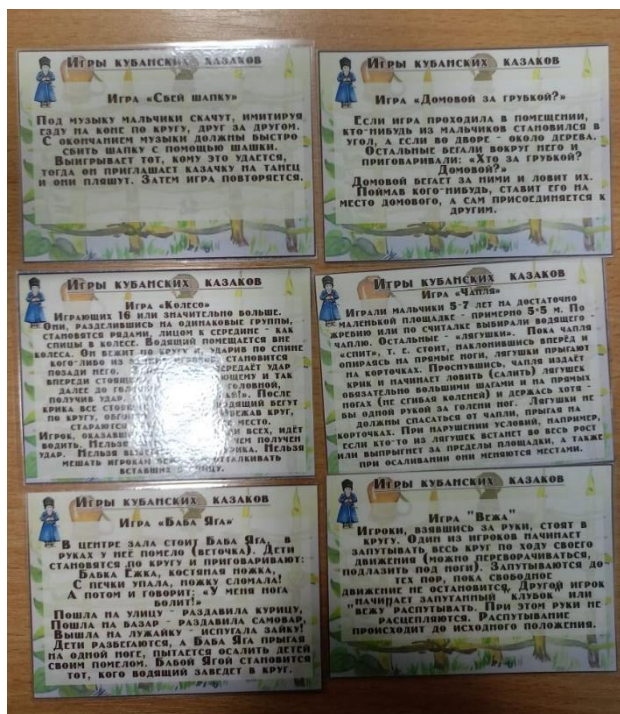 Игры кубанских казаков
Игра «Сбей шапку»
Под музыку мальчики скачут, имитируя
езду на коне по кругу, друг за другом.
С окончанием музыки должны быстро
сбить шапку с помощью шашки.
Выигрывает тот, кому это удается,
тогда он приглашает казачку на танец
и они пляшут. Затем игра повторяется.
Игры кубанских казаков
Игра «Домовой за грубкой?»
Если игра проходила в помещении,
кто-нибудь из мальчиков становился в
угол, а если во дворе - около дерева.
Остальные бегали вокруг него и
приговаривали: «Хто за грубкой?
Домовой?»
Домовой бегает за ними и ловит их.
Поймав кого-нибудь, ставит его на
место домового, а сам присоединяется к
другим.
Игры кубанских казаков
Игра «Колесо»
Играющих 16 или значительно больше.
Они, разделившись на одинаковые группы,
становятся рядами, лицом к середине - как
спицы в колесе. Водящий помещается вне
колеса. Он бежит по кругу и, ударив по спине
кого-либо из становится
позади него. передаёт удар
впереди и так
далее до головной,
получив удар, После
крика все вегут
по кругу, круг,
стараются место.
Игрок, всех, идёт
водить. Нельзя чем получен
удар. Нельзя крика. Нельзя
мешать игрокам отталкивать
вставших
Игры кубанских казаков
Игра «Чапля»
Играли мальчики 5-7 лет на достаточно
маленькой площадке - примерно 5*5 м. По
жребию или по считалке выбирали водящего -
чаплю. Остальные - «лягушки». Пока чапля
«спит», т. е. стоит, наклонившись вперёд и
опираясь на прямые ноги, лягушки прыгают
на корточках. Проснувшись, чапля издаёт
крик и начинает ловить (салить) лягушек
обязательно большими шагами и на прямых
ногах (не сгибая коленей) и держась хотя -
бы одной рукой за голени ног. Лягушки не
должны спасаться от чапли, прыгая на
корточках. При нарушении условий, например,
если кто-то из лягушек встанет во весь рост
или выпрыгнет за пределы площадки, а также
при осаливании они меняются местами.
Игры кубанских казаков
Игра «Баба Яга»
В центре зала стоит Баба Яга, в
руках у неё помело (веточка). Дети
становятся по кругу и приговаривают:
Бабка Ёжка, костяная ножка,
С печки упала, ножку сломала!
А потом и говорит: «У меня нога
болит!»
Пошла на улицу - раздавила курицу,
Пошла на базар - раздавила самовар,
Вышла на лужайку - испугала зайку!
Дети разбегаются, а Баба Яга прыгая
на одной ноге, пытается осалить детей
своим помелом. Бабой Ягой становится
тот, кого водящий заведет в круг.
Игры кубанских казаков
Игра "Вежа"
Игроки, взявшись за руки, стоят в
кругу. Один из игроков начинает
запутывать весь круг по ходу своего
движения (можно переворачиваться,
подлазить под ноги). Запутываются до
тех пор, пока свободное
движение не остановится. Другой игрок
начинает запутанный "клубок" или
"вежу" распутывать. При этом руки не
расцепляются. Распутывание
происходит до исходного положения.